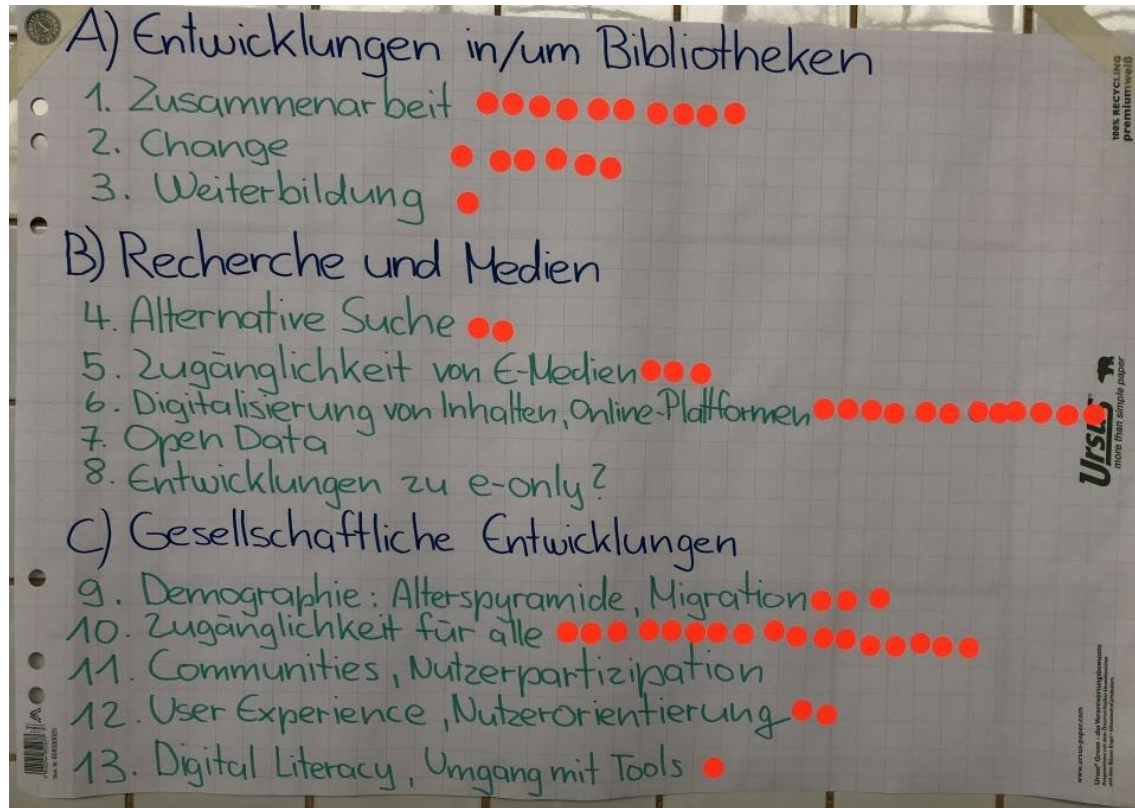 A) Entwicklungen in/um Bibliotheken
1. Zusammenarbeit
2. Change
3. Weiterbildung
B) Recherche und Medien
4. Alternative Suche
5. Zugänglichkeit von E-Medien
6. Digitalisierung von Inhalten, Online-Plattformen
7. Open Data
8. Entwicklungen zu e-only?
C) Gesellschaftliche Entwicklungen
9. Demographie: Alterspyramide, Migration
10. Zugänglichkeit für alle
11. Communities, Nutzerpartizipation
12. User Experience, Nutzerorientierung
13. Digital Literacy, Umgang mit Tools
100% RECYCLING
premiumweiß
Ursus
more than simple paper
www.ursus-paper.com